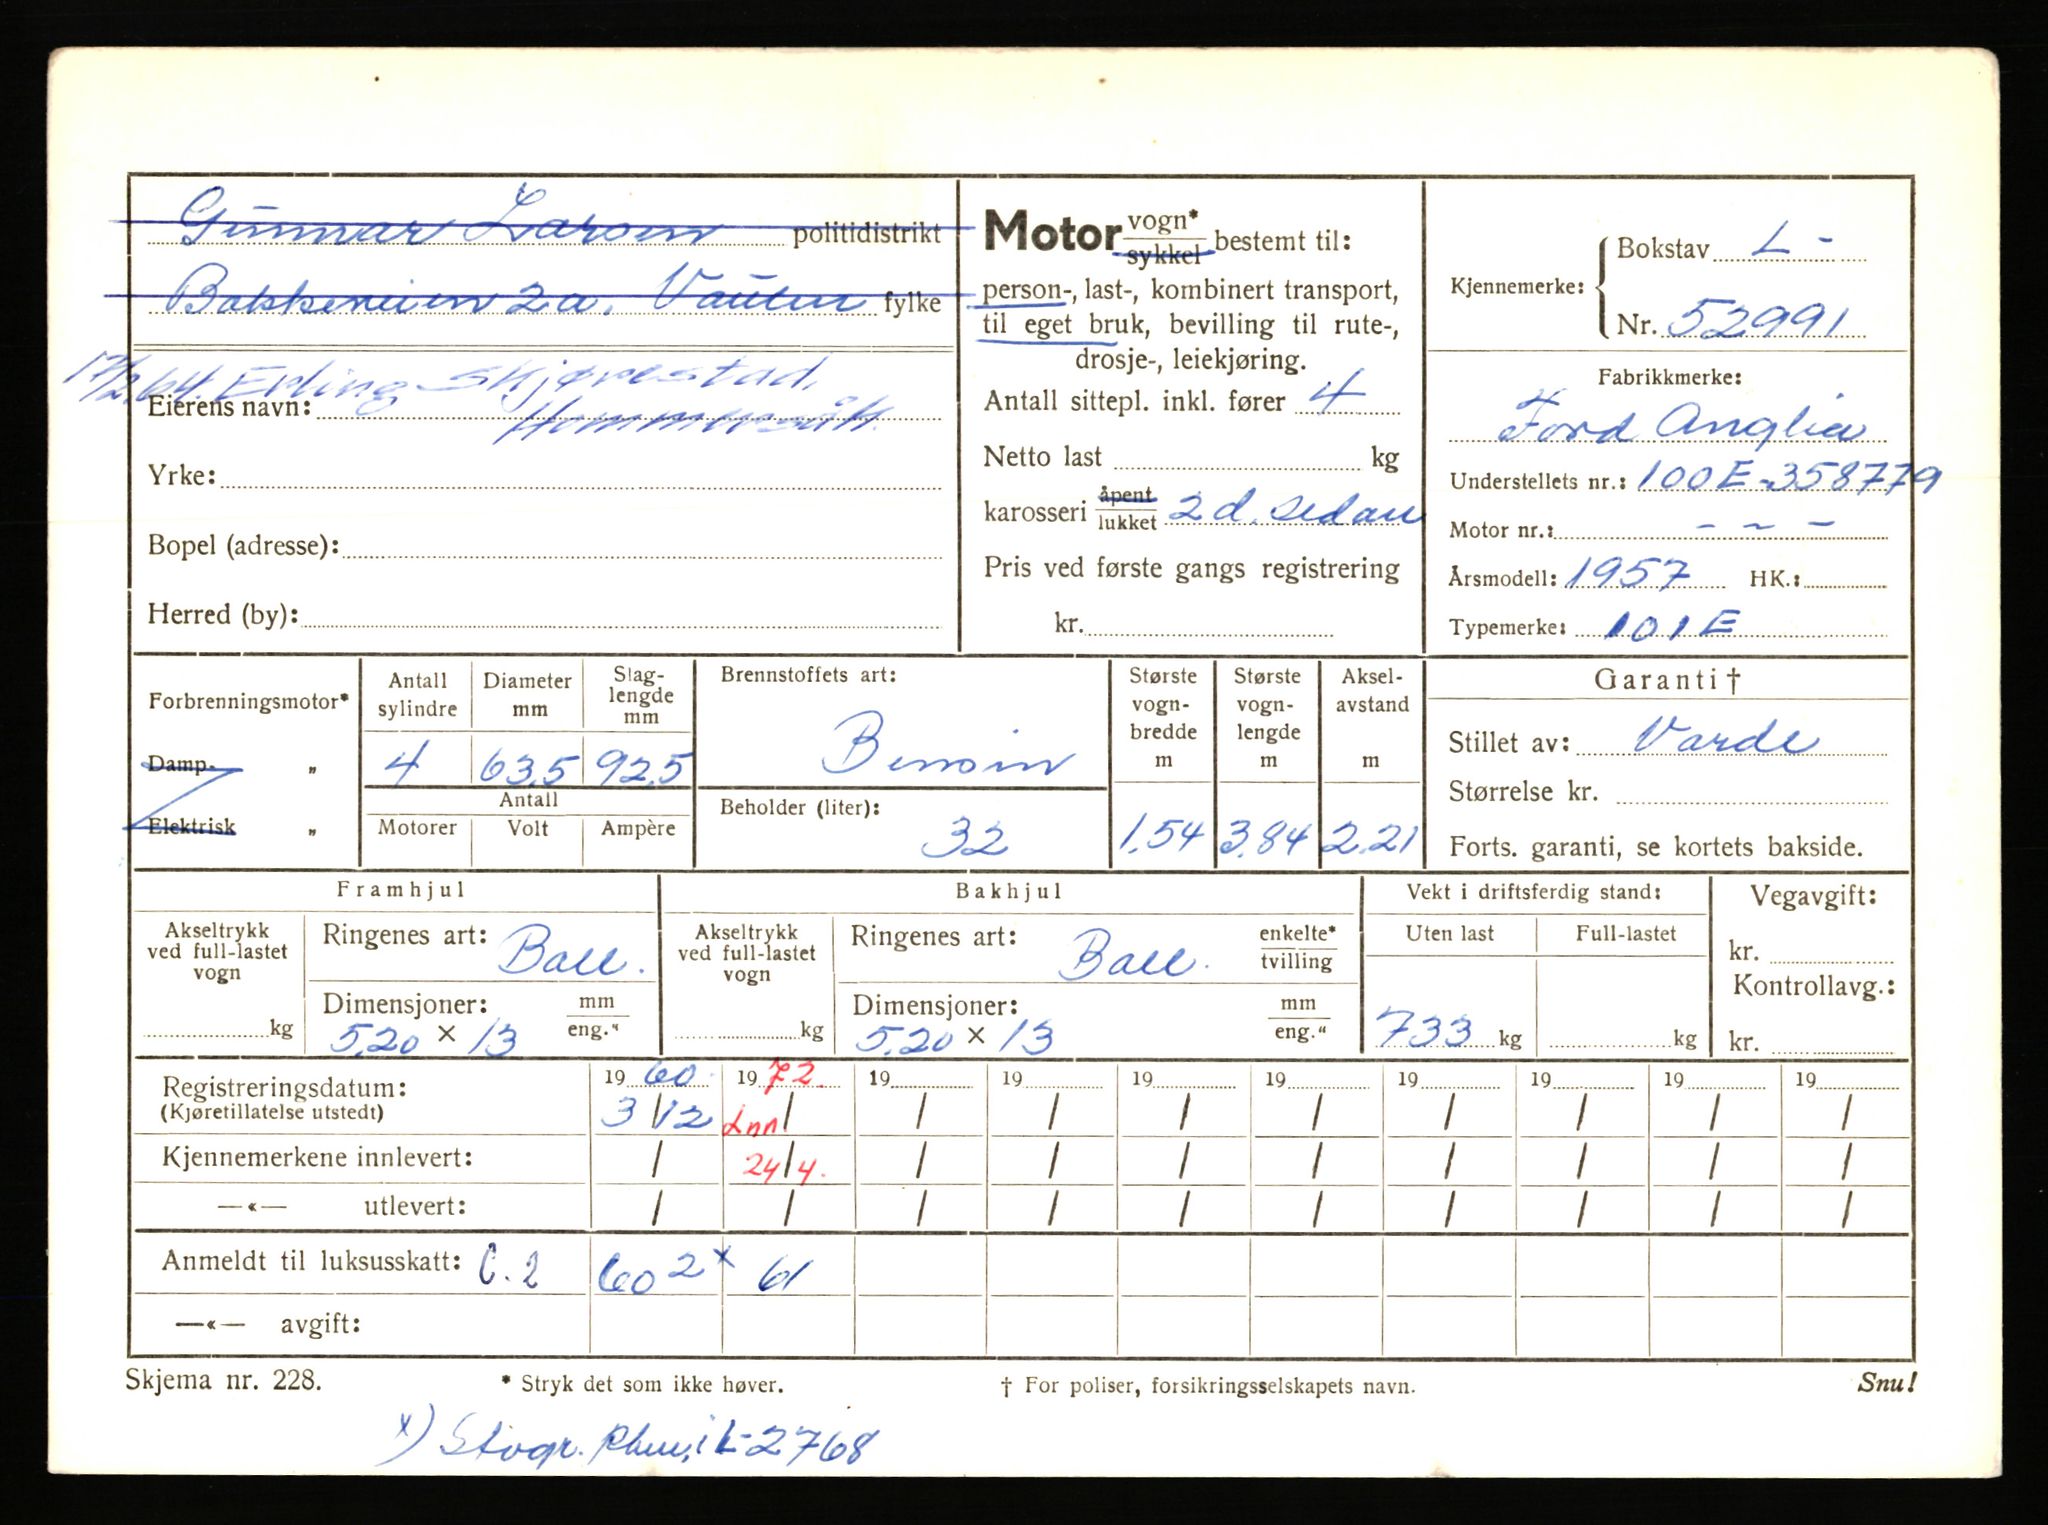 Gunnar Larsen politidistrikt
Bakkeveien 2a, fylke
17/2.64. Erling Skjørestad,
Eierens navn: Hommersåk.
Yrke:
Bopel (adresse):
Herred (by):
Motor vogn* / sykkel bestemt til:
person-, last-, kombinert transport,
til eget bruk, bevilling til rute-,
drosje-, leiekjøring.
Antall sittepl. inkl. fører 4
Netto last kg
karosseri åpent / lukket 2 d. sedan
Pris ved første gangs registrering
kr.
Kjennemerke: Bokstav L-
Nr. 52991
Fabrikkmerke:
Ford Anglia
Understellets nr.: 100E-358779
Motor nr.: - - -
Årsmodell: 1957 HK.:
Typemerke: 101E
Forbrenningsmotor*
Damp- „
Elektrisk „
Antall sylindre
4
Diameter mm
63,5
Slag-lengde mm
92,5
Antall
Motorer Volt Ampère
Brennstoffets art:
Bensin
Beholder (liter):
32
Største vogn-bredde m
1,54
Største vogn-lengde m
3,84
Aksel-avstand m
2.21
Garanti †
Stillet av: Varde
Størrelse kr.
Forts. garanti, se kortets bakside.
Framhjul
Akseltrykk ved full-lastet vogn
kg
Ringenes art: Ball.
Dimensjoner: mm / eng."
5,20 × 13
Bakhjul
Akseltrykk ved full-lastet vogn
kg
Ringenes art: Ball. enkelte* / tvilling
Dimensjoner: mm / eng."
5,20 × 13
Vekt i driftsferdig stand:
Uten last Full-lastet
733 kg kg
Vegavgift:
kr.
Kontrollavg.:
kr.
Registreringsdatum: 1960 1972. 19 19 19 19 19 19 19 19
(Kjøretillatelse utstedt) 3/12 Inn / / / / / / / / /
Kjennemerkene innlevert: / 24/4. / / / / / / / /
—«— utlevert: / / / / / / / / / /
Anmeldt til luksusskatt: C.2 60 2 x 61
—«— avgift:
Skjema nr. 228. * Stryk det som ikke høver. † For poliser, forsikringsselskapets navn. Snu!
x) Stvgr. L-2768